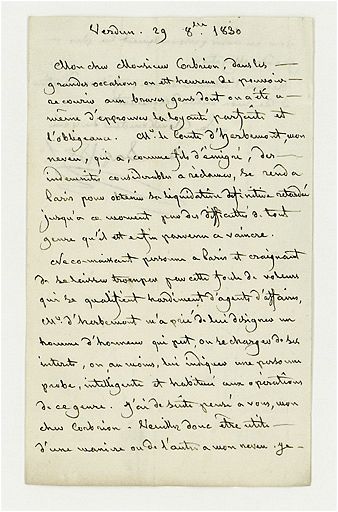 Verdun. 29 8bre. 1830
Mon cher Monsieur Corbrion, dans les
grandes occasions on est heureux de pouvoir
recourir aux braves gens dont on a été a
même d'eprouver la loyauté parfaite et
l'obligeance. Mr. le Comte d'herbemont, mon
neveu, qui a, comme fils d'émigré, des
indemnités considerables a reclamer, se rend a
Paris pour obtenir sa liquidation définitive retardée
jusqu'a ce moment par des difficultés de tout
genre qu'il est enfin parvenu a vaincre.
Ne connaissant personne a Paris et craignant
de se laisser tromper par cette foule de voleurs
qui se qualifient hardiment d'agents d'affaires,
Mr. d'herbemont m'a prié de lui designer un
homme d'honneur qui put, ou se charger de ses
interets, ou au moins, lui indiquer une personne
probe, intelligente et habituée aux opérations
de ce genre. J'ai de suite pensé a vous, mon
cher Corbrion. Veuillez donc être utile
d'une maniere ou de l'autre a mon neveu. je